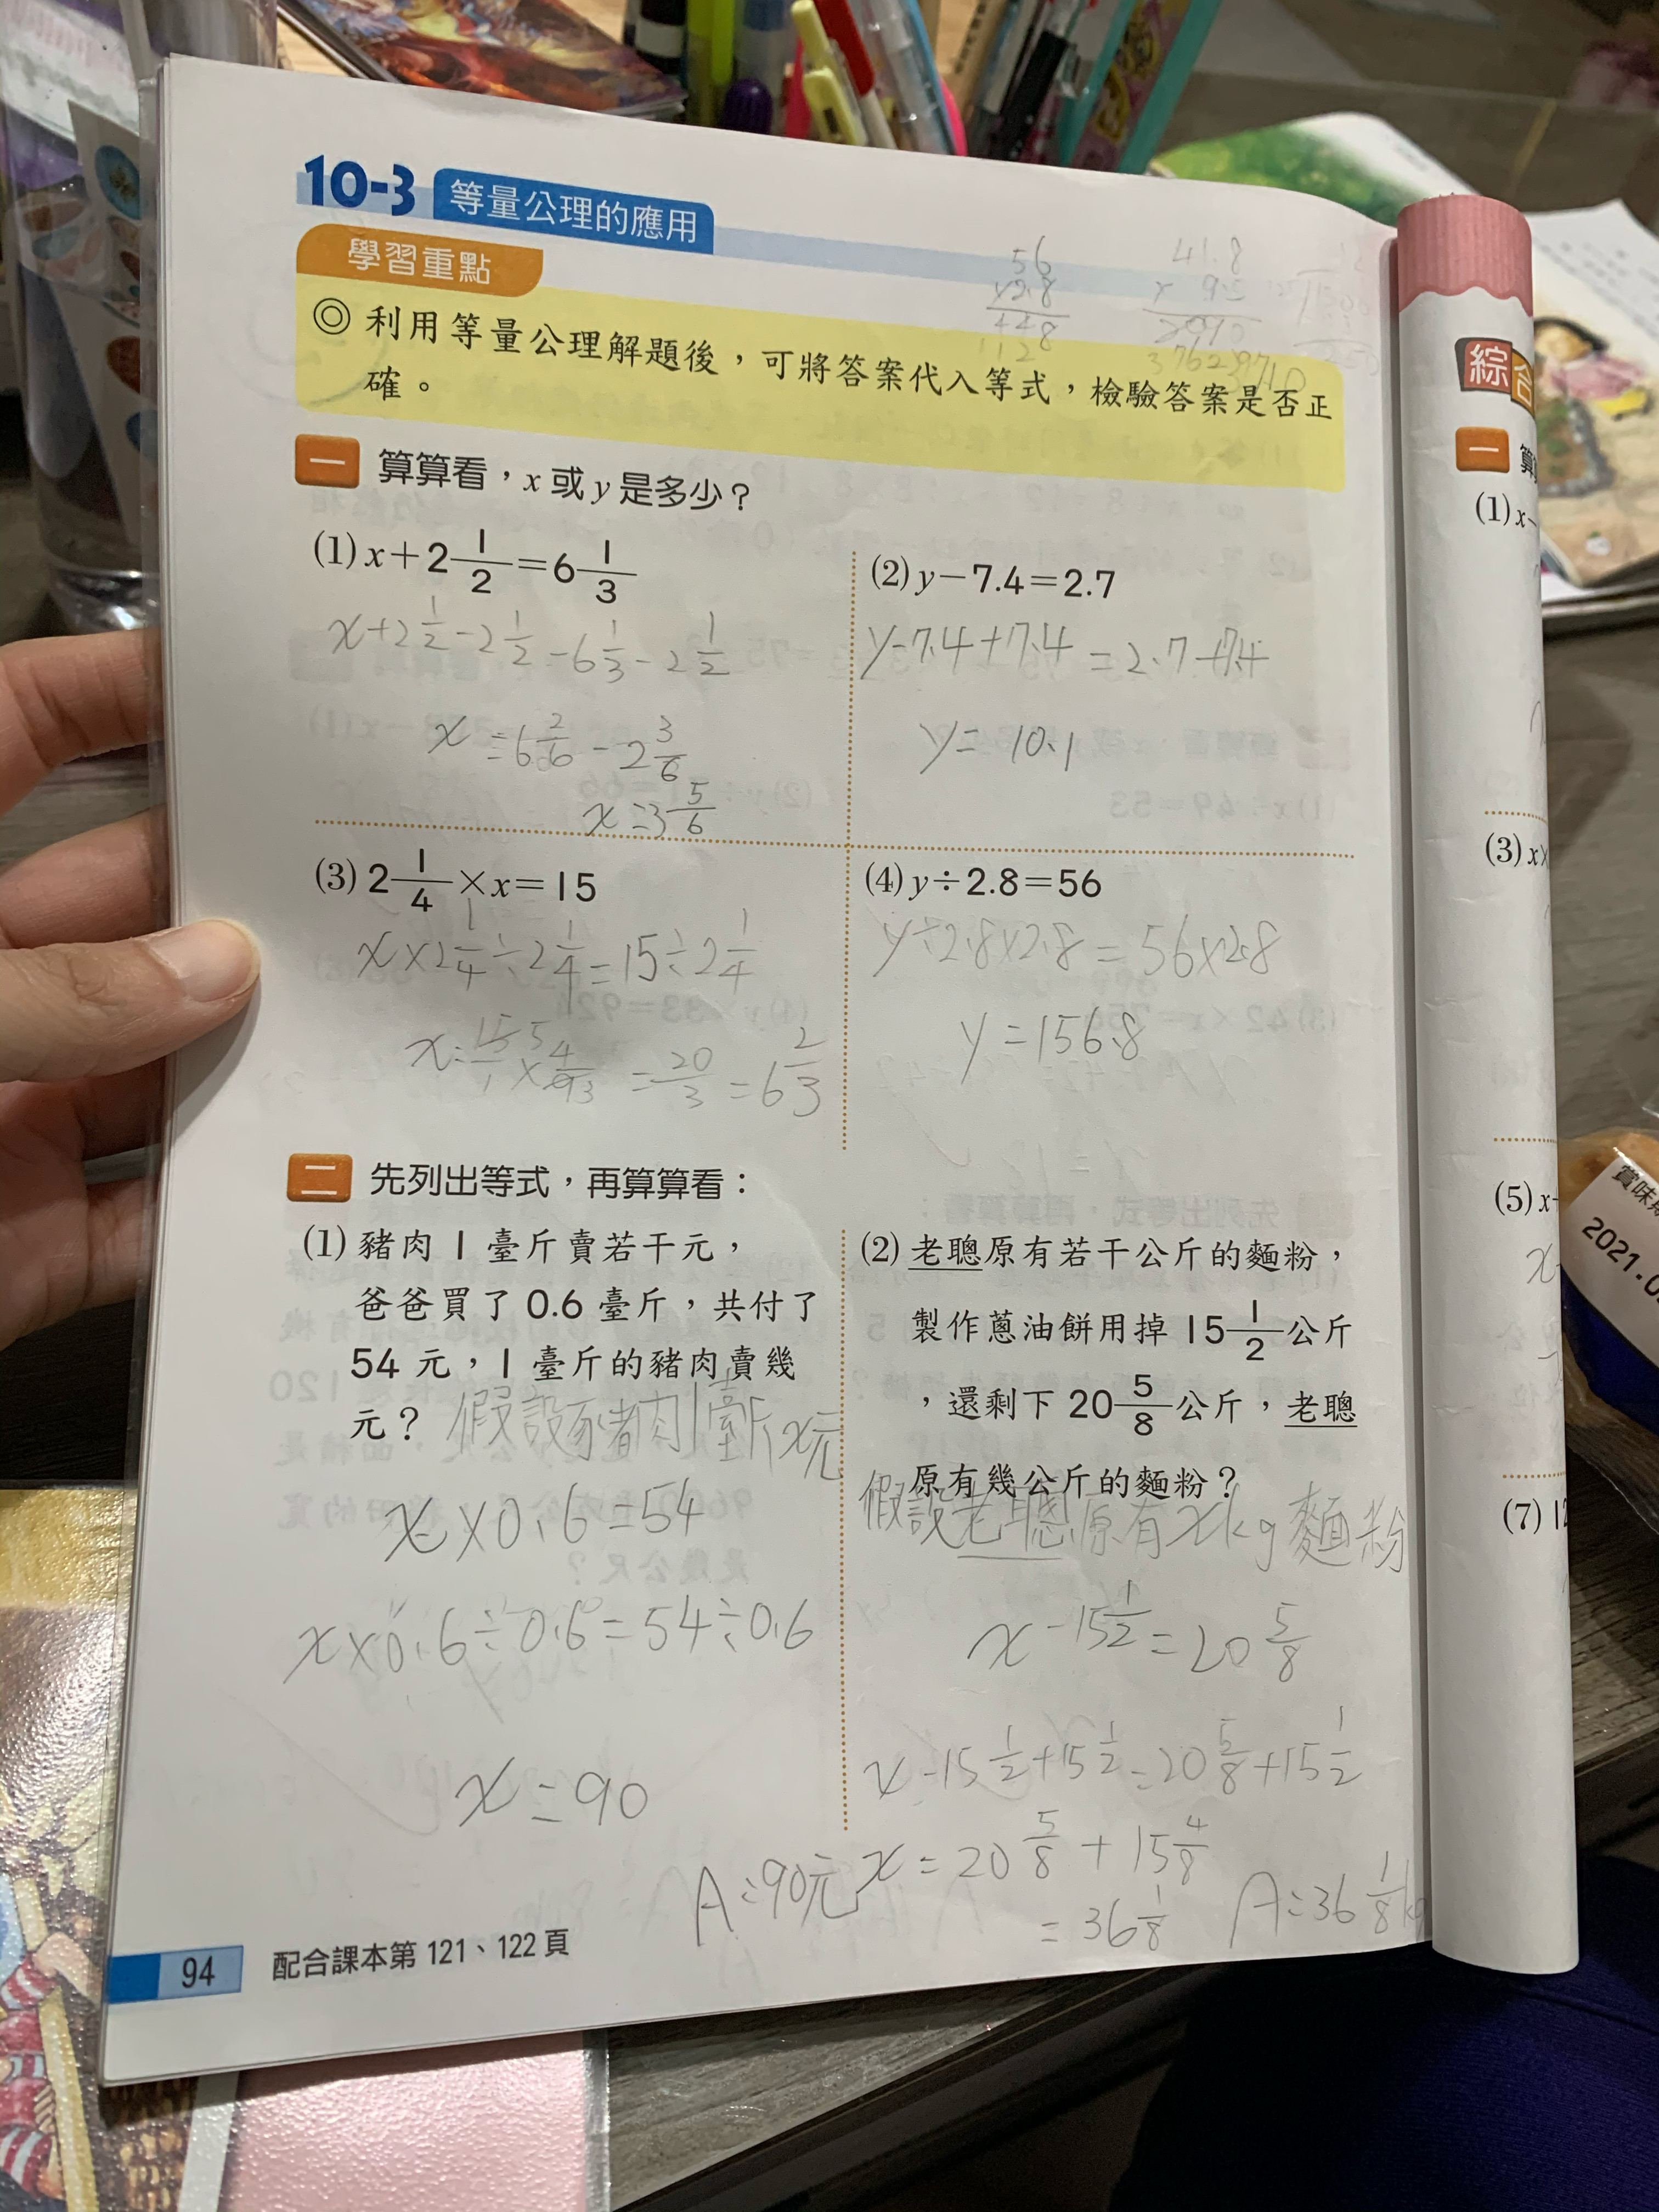 10-3 等量公理的應用
學習重點
◎ 利用等量公理解題後，可將答案代入等式，檢驗答案是否正
確。
56
×2.8
448
112
41.8
× 9.5
2090
3762
一 算算看，x 或 y 是多少？
(1) x＋2 1/2＝6 1/3
x+2 1/2-2 1/2=6 1/3-2 1/2
x=6 2/6-2 3/6
x=3 5/6
(2) y－7.4＝2.7
y-7.4+7.4=2.7+7.4
y=10.1
(3) 2 1/4×x＝15
x×2 1/4÷2 1/4=15÷2 1/4
x=15/1 5×4/9 3=20/3=6 2/3
(4) y÷2.8＝56
y÷2.8×2.8=56×2.8
y=156.8
二 先列出等式，再算算看：
(1) 豬肉 1 臺斤賣若干元，
爸爸買了 0.6 臺斤，共付了
54 元，1 臺斤的豬肉賣幾
元？
假設豬肉1臺斤x元
x×0.6=54
x×0.6÷0.6=54÷0.6
x=90
A:90元
(2) 老聰原有若干公斤的麵粉，
製作蔥油餅用掉 15 1/2 公斤
，還剩下 20 5/8 公斤，老聰
原有幾公斤的麵粉？
假設老聰原有xkg麵粉
x-15 1/2=20 5/8
x-15 1/2+15 1/2=20 5/8+15 1/2
x=20 5/8+15 4/8
=36 1/8
A:36 1/8kg
94 配合課本第 121、122 頁
綜合
一 算
(1) x－
(3) x×
(5) x
(7) 12
賞味期
2021.0